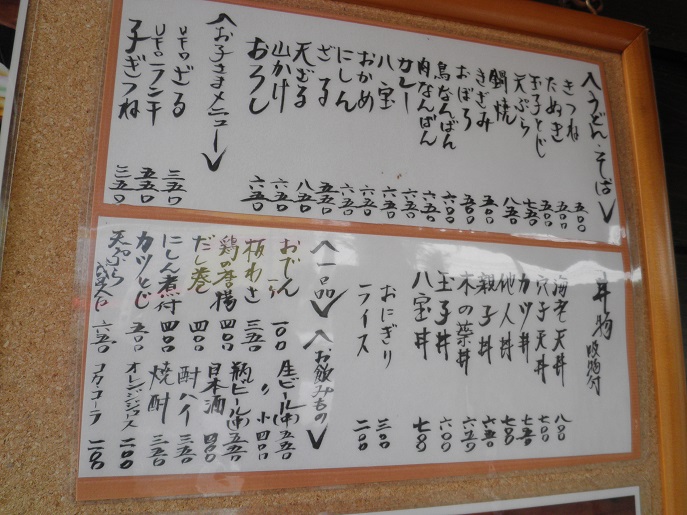 〈うどん・そば〉
きつね 五〇〇
たぬき 五〇〇
玉子とじ 五〇〇
天ぷら 七五〇
鍋焼 八五〇
きざみ 五〇〇
おぼろ 五〇〇
鳥なんばん 六〇〇
肉なんばん 六五〇
カレー 六五〇
八宝 六五〇
おかめ 六五〇
にしん 六五〇
ざる 六五〇
天ざる 八五〇
山かけ 六五〇
おろし 六五〇
〈お子さまメニュー〉
UFOざる 三五〇
UFOランチ 五五〇
子ぎつね 三五〇
丼物 吸物付
海老天丼 八〇〇
穴子天丼 七〇〇
カツ丼 七五〇
他人丼 七〇〇
親子丼 六五〇
木の葉丼 六五〇
玉子丼 六〇〇
八宝丼 七〇〇
おにぎり 三〇〇
ライス 二〇〇
〈一品〉
おでん 一〇〇
板わさ 三五〇
鶏の唐揚 四〇〇
だし巻 四〇〇
にしん煮付 四〇〇
カツとじ 五〇〇
天ぷら 六五〇
〈お飲みもの〉
生ビール(中) 五五〇
〃 小 四〇〇
瓶ビール(中) 五五〇
日本酒 四〇〇
酎ハイ 三五〇
焼酎 三五〇
オレンジジュース 二〇〇
コカ・コーラ 二〇〇